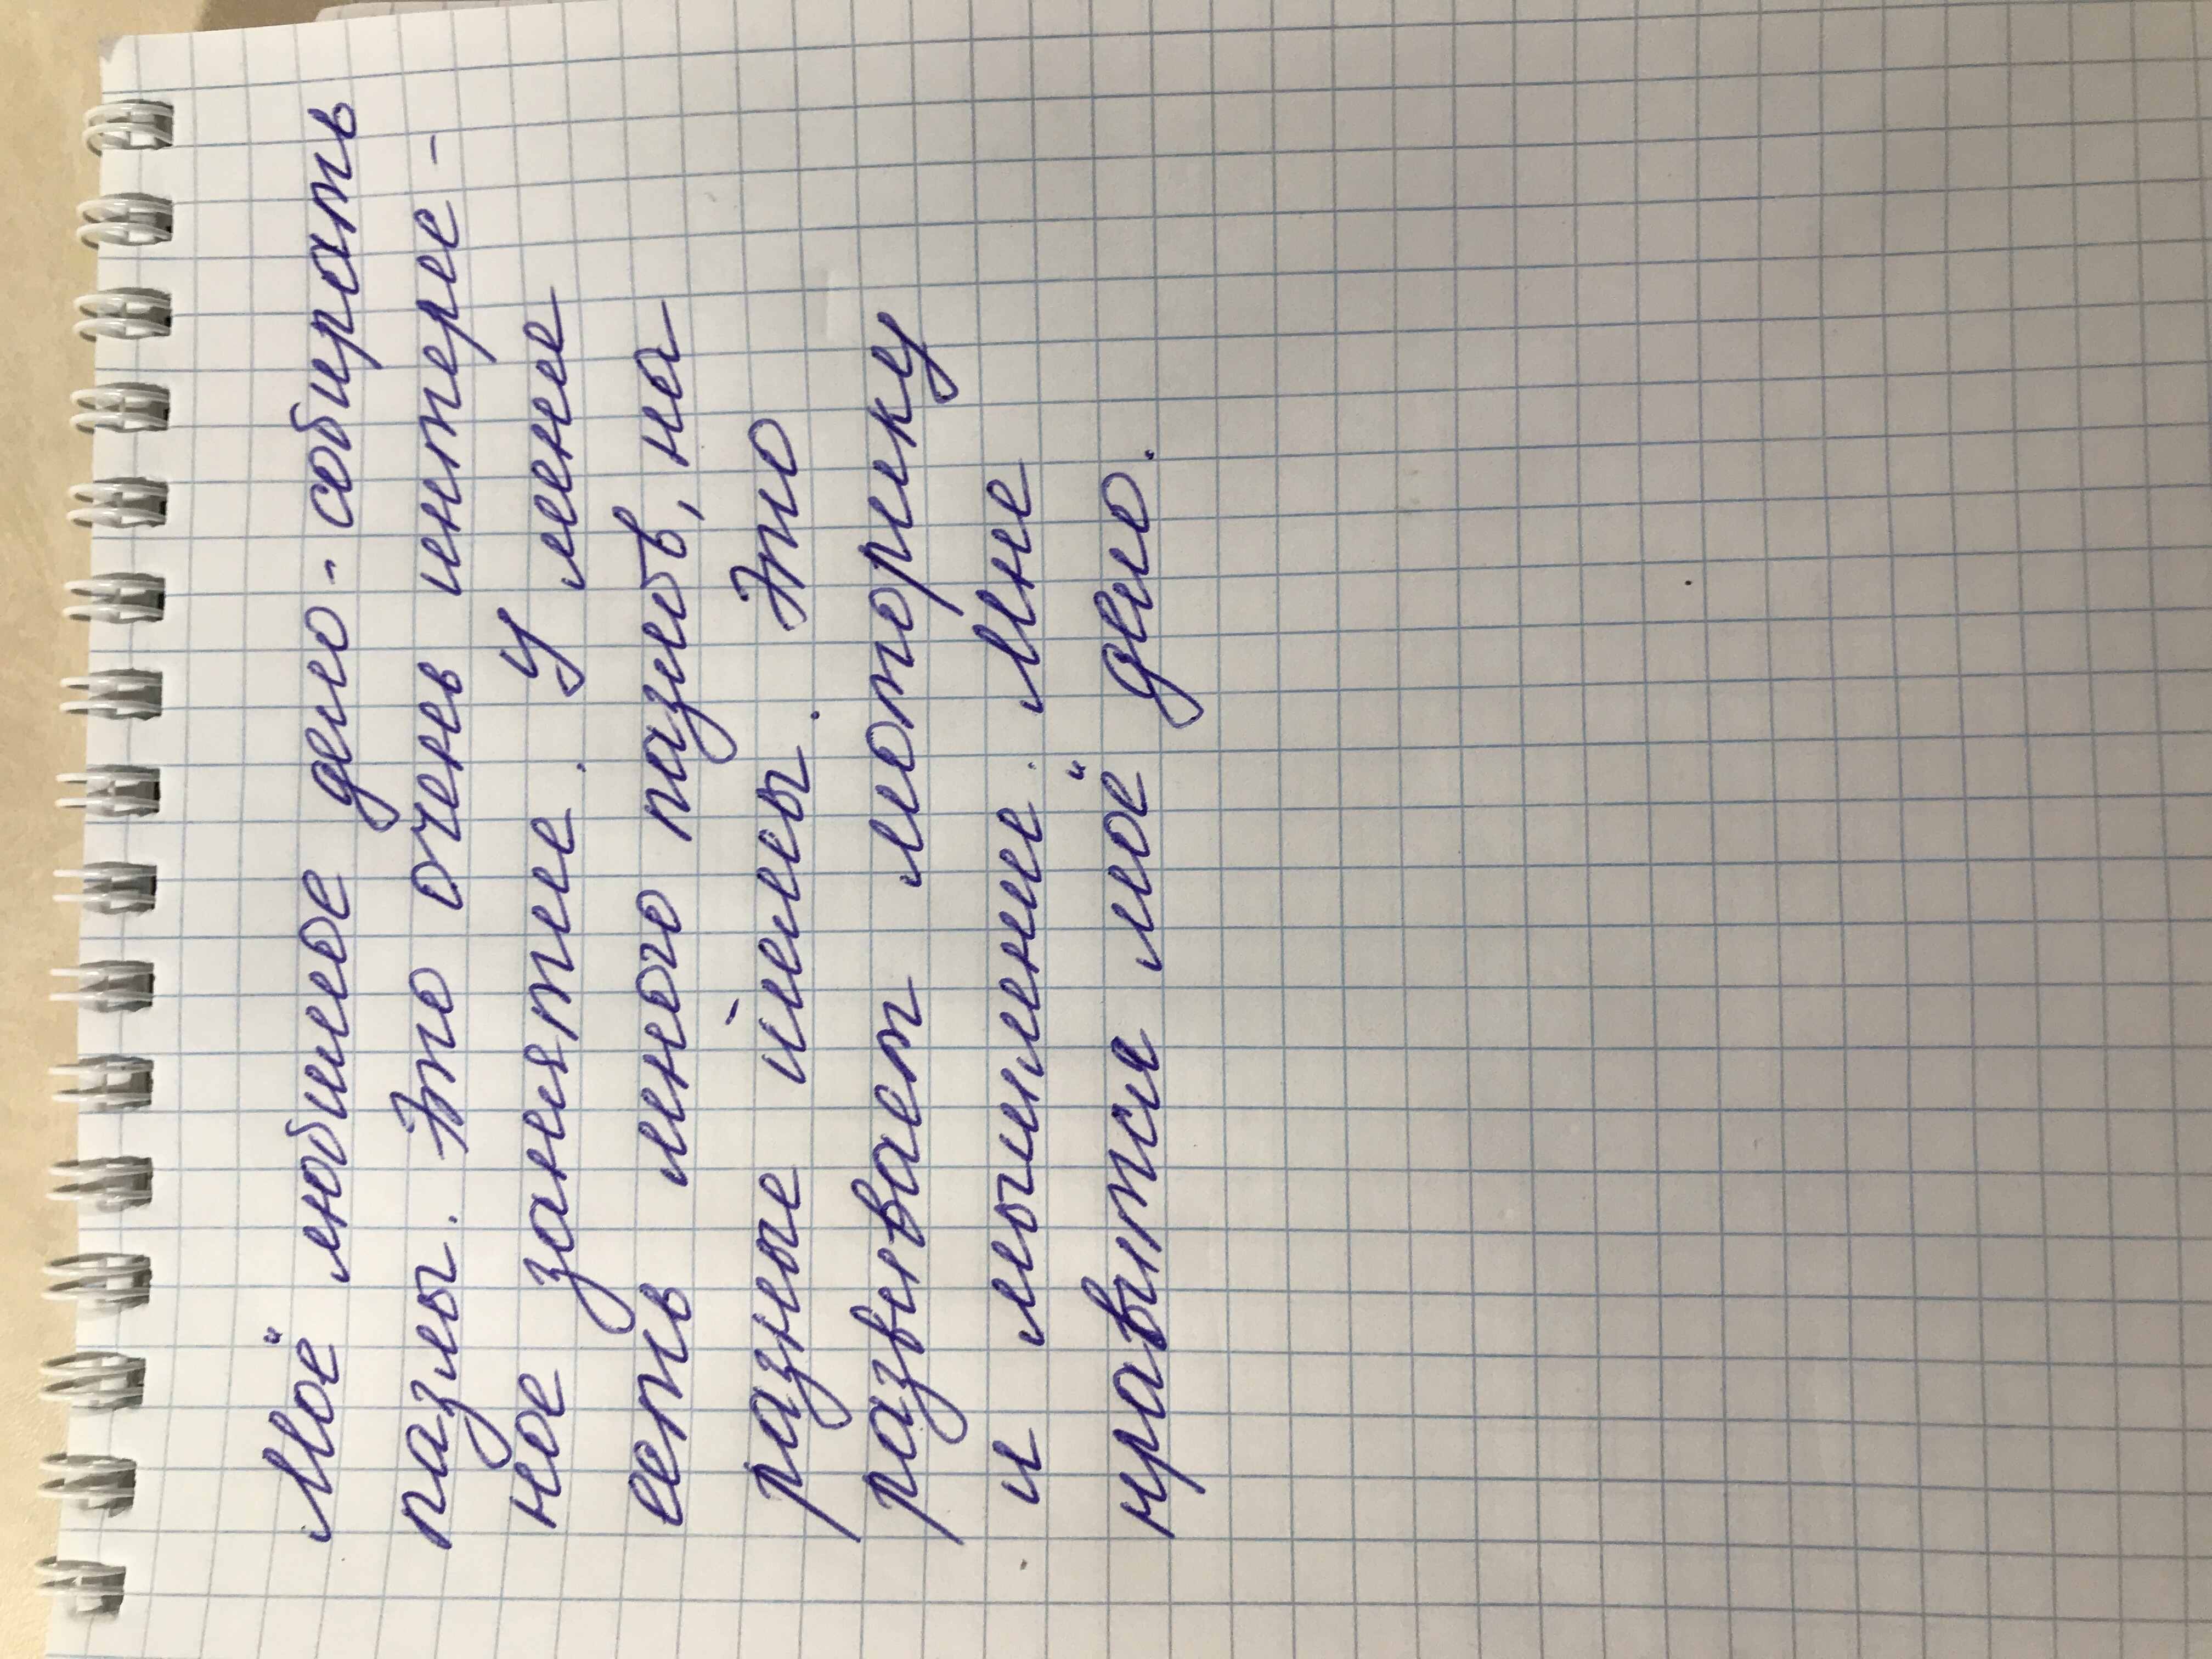 Моё любимое дело - собирать
пазлы. Это очень интере-
ное занятие. У мене
есть много пазлов, на
разные темы. Это
развивает моторику
и мышление. Мне
нравится моё дело.